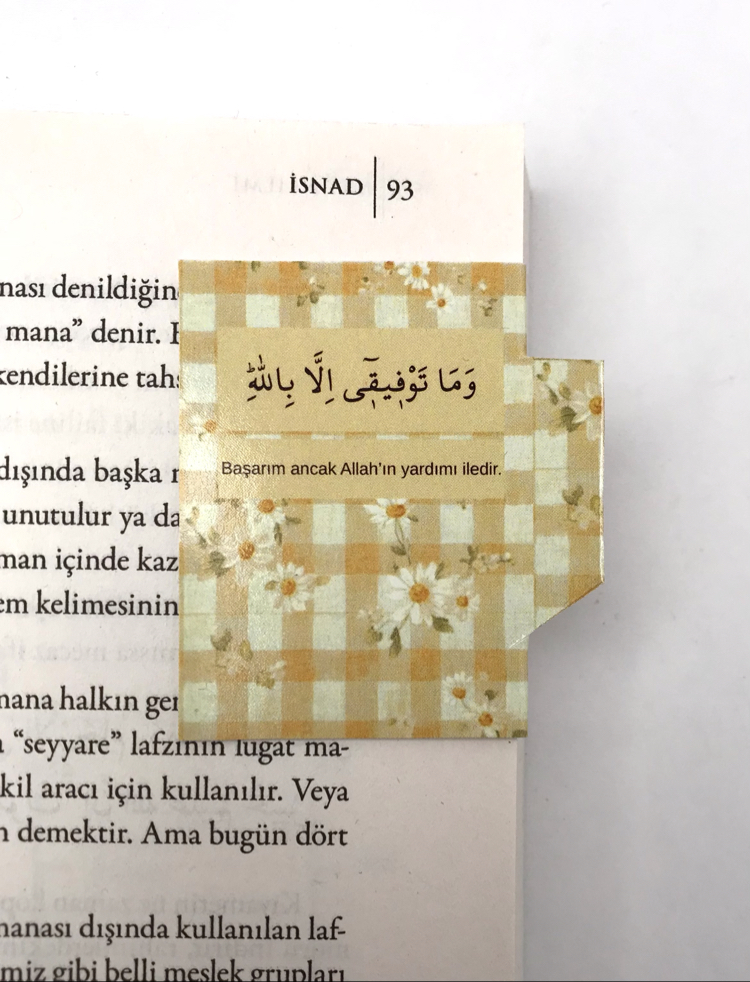 İSNAD | 93
nası denildiğin
mana” denir.
kendilerine
وَمَا تَوْفِيقٖٓى اِلَّا بِاللّٰهِ
Başarım ancak Allah’ın yardımı iledir.
dışında başka
unutulur ya da
man içinde kaz
em kelimesinin
mana halkın ger
“seyyare” lafzının lugat ma-
kil aracı için kullanılır. Veya
demektir. Ama bugün dört
manası dışında kullanılan laf-
miz gibi belli meslek grupları